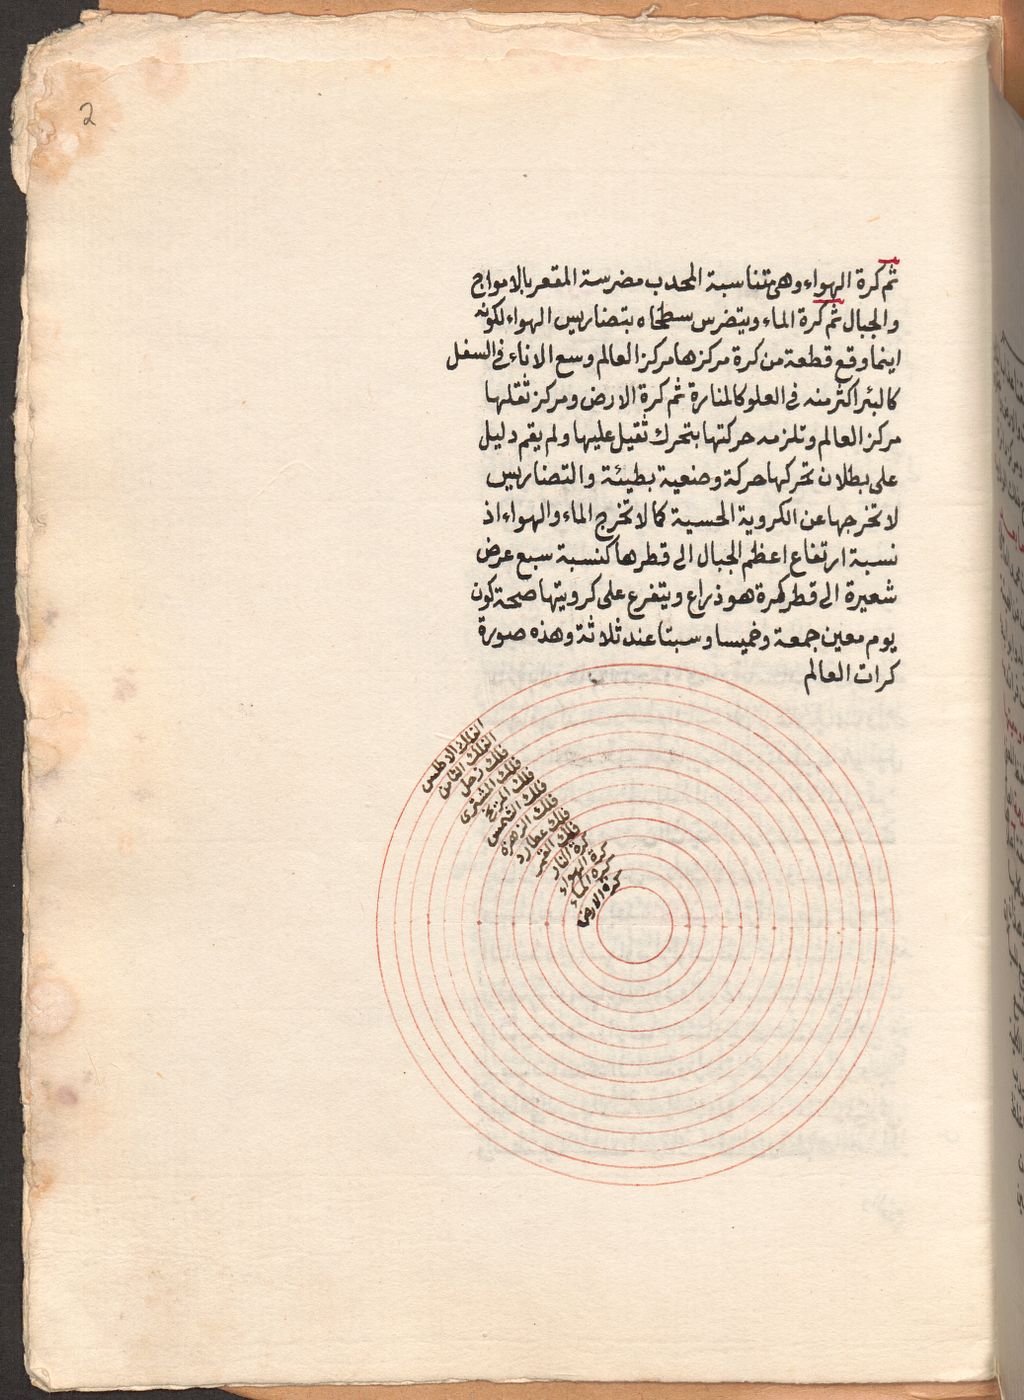 2
ثم كرة الهواء وهى متناسبة المحدب مضرسة المقعر بالامواج
والجبال ثم كرة الماء ويتضرس سطحاه بتضاريس الهواء لكونه
اينما وقع قطعة من كرة مركزها مركز العالم وسع الاناء فى السفل
كالبئر اكثر منه فى العلو كالمنارة ثم كرة الارض ومركز ثقلها
مركز العالم وتلزمه حركتها بتحرك ثقيل عليها ولم يقم دليل
على بطلان تحركها حركة وضعية بطيئة والتضاريس
لا تخرجها عن الكروية الحسية كما لا تخرج الماء والهواء اذ
نسبة ارتفاع اعظم الجبال الى قطرها كنسبة سبع عرض
شعيرة الى قطر كرة هو ذراع ويتفرع على كرويتها صحة كون
يوم معين جمعة وخميسا وسبتا عند ثلاثة وهذه صورة
كرات العالم
الفلك الاطلس
الفلك الثامن
فلك زحل
فلك المشترى
فلك المريخ
فلك الشمس
فلك الزهرة
فلك عطارد
فلك القمر
كرة النار
كرة الهواء
كرة الماء
كرة الارض